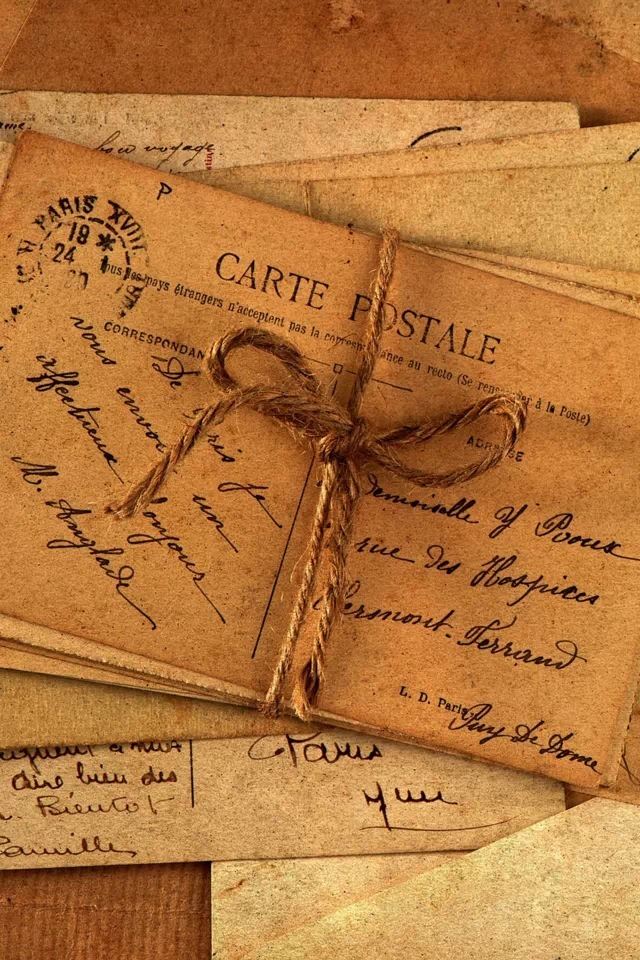 bon voyage
P
PARIS XVIII
18 *
24
CARTE POSTALE
pays étrangers n'acceptent pas la correspondance au recto (Se renseigner à la Poste)
CORRESPONDAN
De Paris je
vous envoi un
affectueux toujours
M. Anglade
ADRESSE
demoiselle Y
rue des Hospices
Clermont-Ferrand
L. D. Paris
Puy De Dome
à nos
dire bien des
Bientôt
Camille
Paris